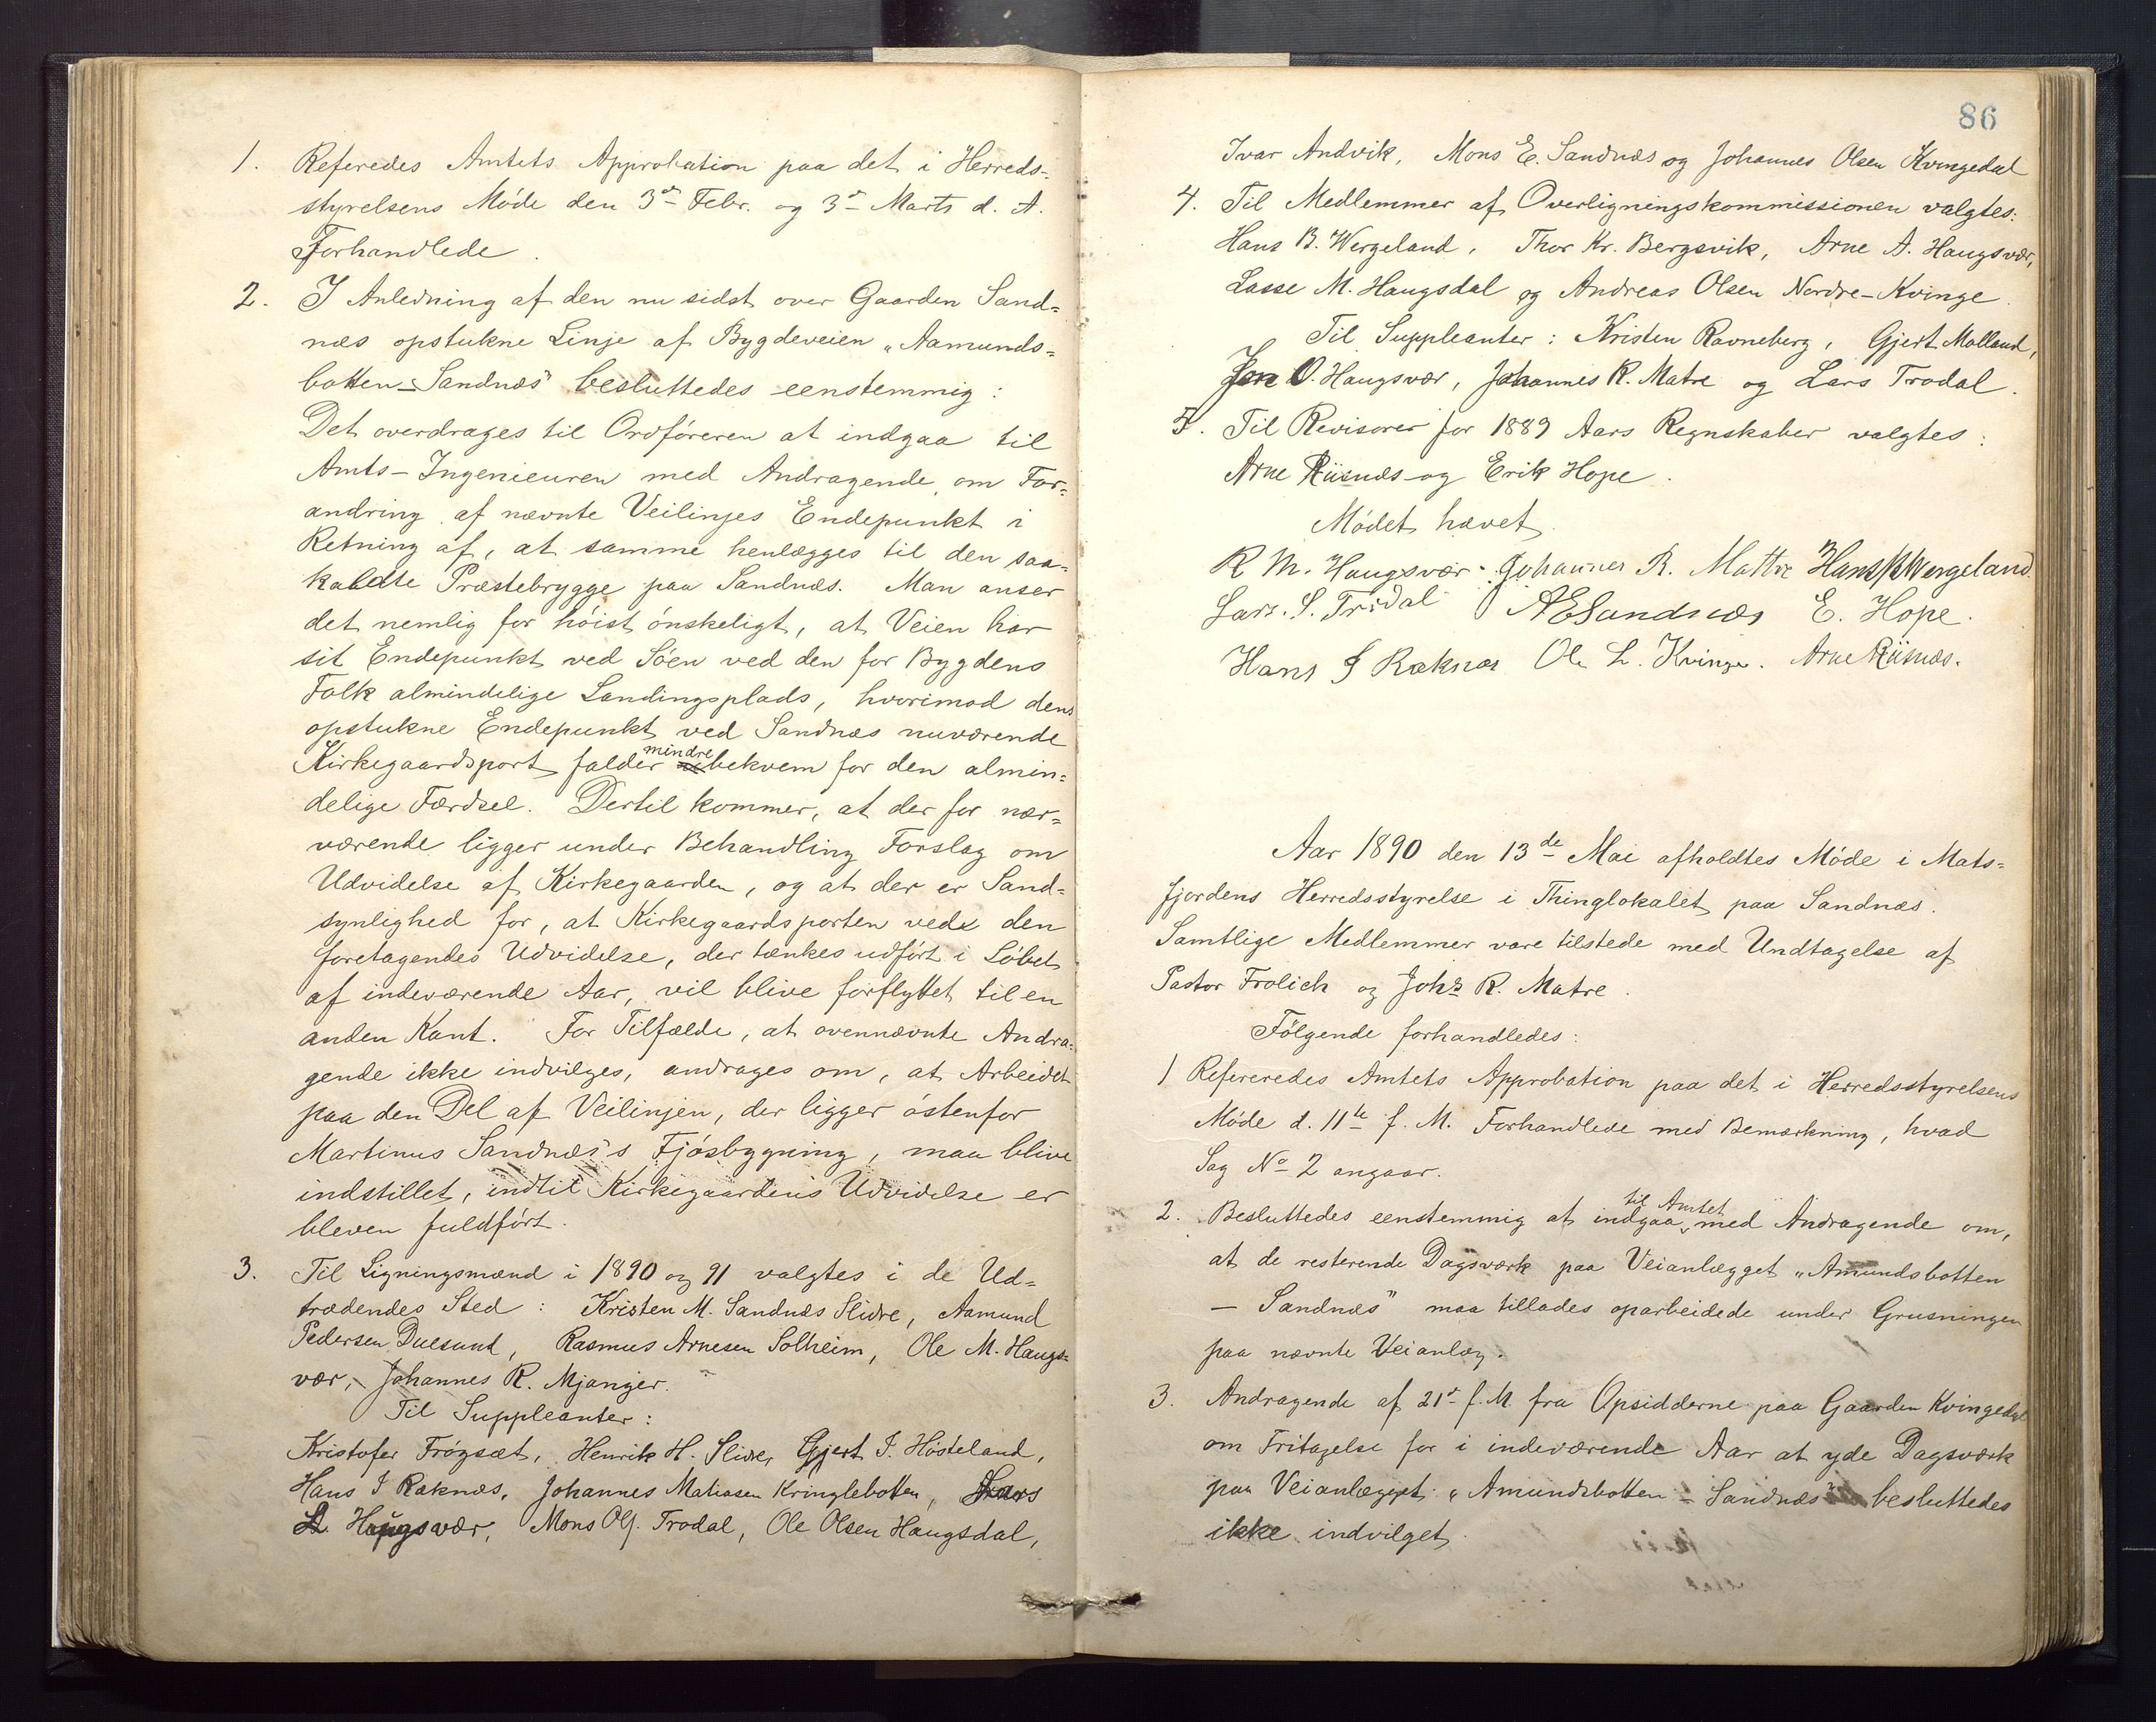 1. Referedes Amtets Approbation paa det i Herreds-
styrelsens Møde den 3die Febr. og 3die Marts d. A.
Forhandlede.
2. I Anledning af den nu sidst over Gaarden Sand-
næs opstukne Linje af Bygdeveien „Aamunds-
botten – Sandnæs" besluttedes eenstemmig:
Det overdrages til Ordføreren at indgaa til
Amts-Ingenieuren med Andragende om For-
andring af nævnte Veilinjes Endepunkt i
Retning af, at samme henlægges til den saa-
kaldte Præstebrygge paa Sandnæs. Man anser
det nemlig for høist ønskeligt, at Veien har
sit Endepunkt ved Søen ved den for Bygdens
Folk almindelige Landingsplads, hvorimod dens
opstukne Endepunkt ved Sandnæs nuværende
Kirkegaardsport falder mindre bekvem for den almin-
delige Færdsel. Dertil kommer, at der for nær-
værende ligger under Behandling Forslag om
Udvidelse af Kirkegaarden, og at der er Sand-
synlighed for, at Kirkegaardsporten ved den
foretagendes Udvidelse, der tænkes udført i Løbet
af indeværende Aar, vil blive forflyttet til en
anden Kant. For Tilfælde, at ovennævnte Andra-
gende ikke indvilges, andrages om, at Arbeidet
paa den Del af Veilinjen, der ligger østenfor
Martinus Sandnæs's Fjøsbygning, maa blive
indstillet, indtil Kirkegaardens Udvidelse er
bleven fuldført.
3. Til Ligningsmænd i 1890 og 91 valgtes i de Ud-
trædendes Sted: Kristen M. Sandnæs Slidre, Aamund
Pedersen Duesund, Rasmus Arnesen Solheim, Ole M. Haugs-
vær, Johannes R. Mjanger.
Til Suppleanter:
Kristofer Frøyset, Henrik H. Slidre, Gjert I. Høsteland,
Hans I Raknæs, Johannes Matiasen Kringlebotten, Lars
A. Haugsvær, Mons Olj. Trodal, Ole Olsen Haugsdal,
86
Ivar Andvik, Mons E. Sandnæs og Johannes Olsen Kvingedal
4. Til Medlemmer af Overligningskommissionen valgtes:
Hans B. Wergeland, Thor Kr. Bergsvik, Arne A. Haugsvær,
Lasse M. Haugsdal og Andreas Olsen Nordre-Kvinge.
Til Suppleanter: Kristen Ravneberg, Gjert Molland,
Jon O. Haugsvær, Johannes R. Matre og Lars Trodal.
5. Til Revisorer for 1889 Aars Regnskaber valgtes:
Arne Riisnæs og Erik Hope.
Mødet hævet
R M. Haugsvær. Johannes R. Mattre Hans B Wergeland.
Lars. S. Trodal AESandnæs E. Hope.
Hans I Raknæs Ole L. Kvinge. Arne Riisnæs.
Aar 1890 den 13de Mai afholdtes Møde i Mats-
fjordens Herredsstyrelse i Thinglokalet paa Sandnæs.
Samtlige Medlemmer vare tilstede med Undtagelse af
Pastor Frolich og Johs R. Matre.
Følgende forhandledes:
1 Refereredes Amtets Approbation paa det i Herredsstyrelsens
Møde d. 11te f. M. Forhandlede med Bemærkning, hvad
Sag No 2 angaar.
2. Besluttedes eenstemmig at indgaa til Amtet med Andragende om,
at de resterende Dagsværk paa Veianlægget „Amundsbotten
– Sandnæs" maa tillades oparbeidede under Grusningen
paa nævnte Veianlæg.
3. Andragende af 21de f. M. fra Opsidderne paa Gaarden Kvingedal
om Fritagelse for i indeværende Aar at yde Dagsværk
paa Veianlægget „Amundsbotten – Sandnæs" besluttedes
ikke indvilget.